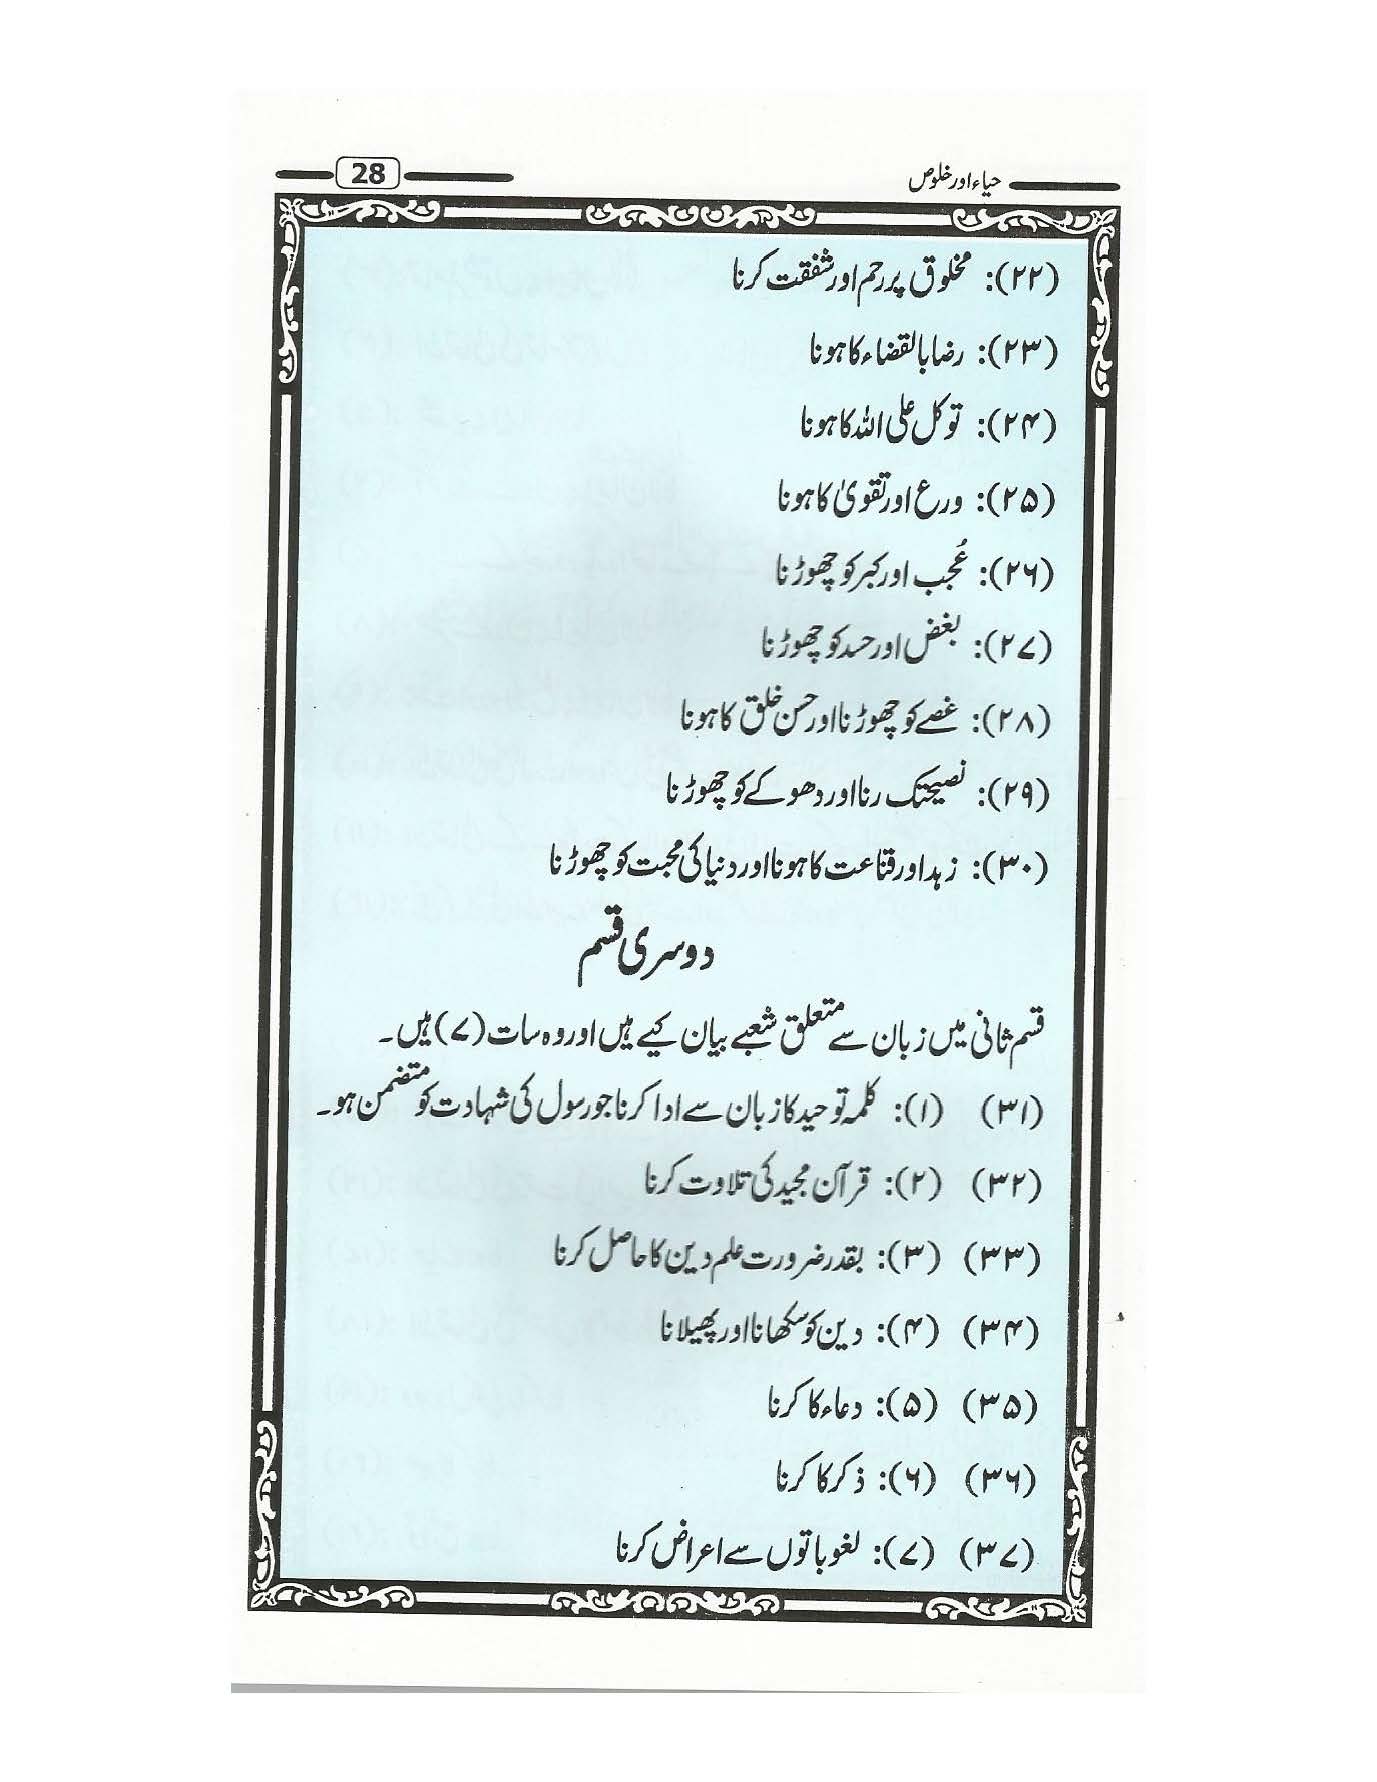 حیاء اور خلوص 28
(۲۲): مخلوق پر رحم اور شفقت کرنا
(۲۳): رضا بالقضاء کا ہونا
(۲۴): توکل علی اللہ کا ہونا
(۲۵): ورع اور تقویٰ کا ہونا
(۲۶): عُجب اور کبر کو چھوڑنا
(۲۷): بغض اور حسد کو چھوڑنا
(۲۸): غصے کو چھوڑنا اور حسن خلق کا ہونا
(۲۹): نصیحتک رنا اور دھوکے کو چھوڑنا
(۳۰): زہد اور قناعت کا ہونا اور دنیا کی محبت کو چھوڑنا
دوسری قسم
قسم ثانی میں زبان سے متعلق شعبے بیان کیے ہیں اور وہ سات (۷) ہیں۔
(۳۱) (۱): کلمہ توحید کا زبان سے ادا کرنا جو رسول کی شہادت کو متضمن ہو۔
(۳۲) (۲): قرآن مجید کی تلاوت کرنا
(۳۳) (۳): بقدر ضرورت علم دین کا حاصل کرنا
(۳۴) (۴): دین کو سکھانا اور پھیلانا
(۳۵) (۵): دعاء کا کرنا
(۳۶) (۶): ذکر کا کرنا
(۳۷) (۷): لغو باتوں سے اعراض کرنا